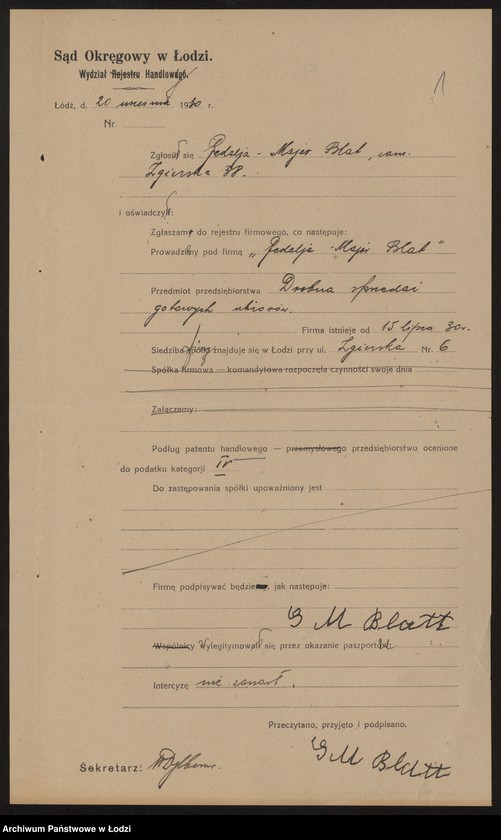 Sąd Okręgowy w Łodzi.
Wydział Rejestru Handlowego.
1
Łódź, d. 20 września 1930 r.
Nr.
Zgłosił się Gedalja - Majer Blat, zam.
Zgierska 38.
i oświadczył:
Zgłaszam do rejestru firmowego, co następuje:
Prowadzimy pod firmą „Gedalja - Majer Blat"
Przedmiot przedsiębiorstwa Drobna sprzedaż
gotowych ubiorów.
Firma istnieje od 15 lipca 30 r.
Siedziba znajduje się w Łodzi przy ul. Zgierska Nr. 6
Spółka firmowa — komandytowa rozpoczęła czynności swoje dnia
Załączamy:
Podług patentu handlowego — przemysłowego przedsiębiorstwo ocenione
do podatku kategorji IV
Do zastępowania spółki upoważniony jest
Firmę podpisywać będzie, jak następuje:
G M Blatt
Wspólnicy wylegitymowali się przez okazanie paszportów.
Intercyzę nie zawarł.
Przeczytano, przyjęto i podpisano.
G M Blatt
Sekretarz:
Archiwum Państwowe w Łodzi